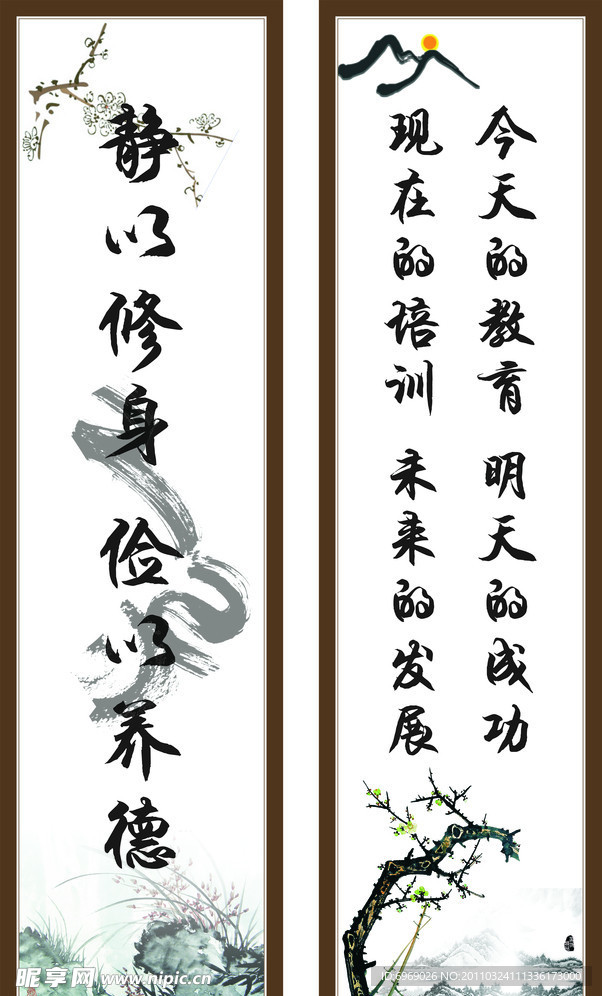 静以修身 俭以养德
今天的教育 明天的成功
现在的培训 未来的发展
昵享网 www.nipic.cn
ID:6969026 NO:20110324111336173000